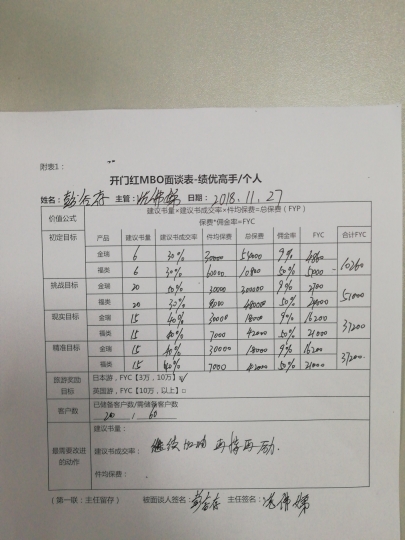 附表1：
开门红MBO面谈表-绩优高手/个人
姓名： 主管： 日期：2018.11.27
价值公式 建议书量×建议书成交率×件均保费=总保费（FYP）
保费*佣金率=FYC
初定目标 产品 建议书量 建议书成交率 件均保费 总保费 佣金率 FYC 合计FYC
金瑞 6 30% 30000 54000 9% 4860
福类 6 30% 6000 10800 50% 10260
挑战目标 金瑞 20 50% 30000 300000 9%
福类 20 30% 8000 48000 50% 51000
现实目标 金瑞 15 40% 30000 18000 9% 16200
福类 15 40% 7000 42000 50% 21000 37200
精准目标 金瑞 15 40% 30000 18000 9% 16200
福类 15 40% 7000 42000 50% 21000 37200
旅游奖励目标 日本游，FYC【3万，10万】☑
英国游，FYC【10万，以上】□
客户数 已储备客户数/需储备客户数
20 / 60
最需要改进的动作 建议书量：
建议书成交率： 继续加油 再接再励.
件均保费：
（第一联：主任留存） 被面谈人签名： 主任签名：